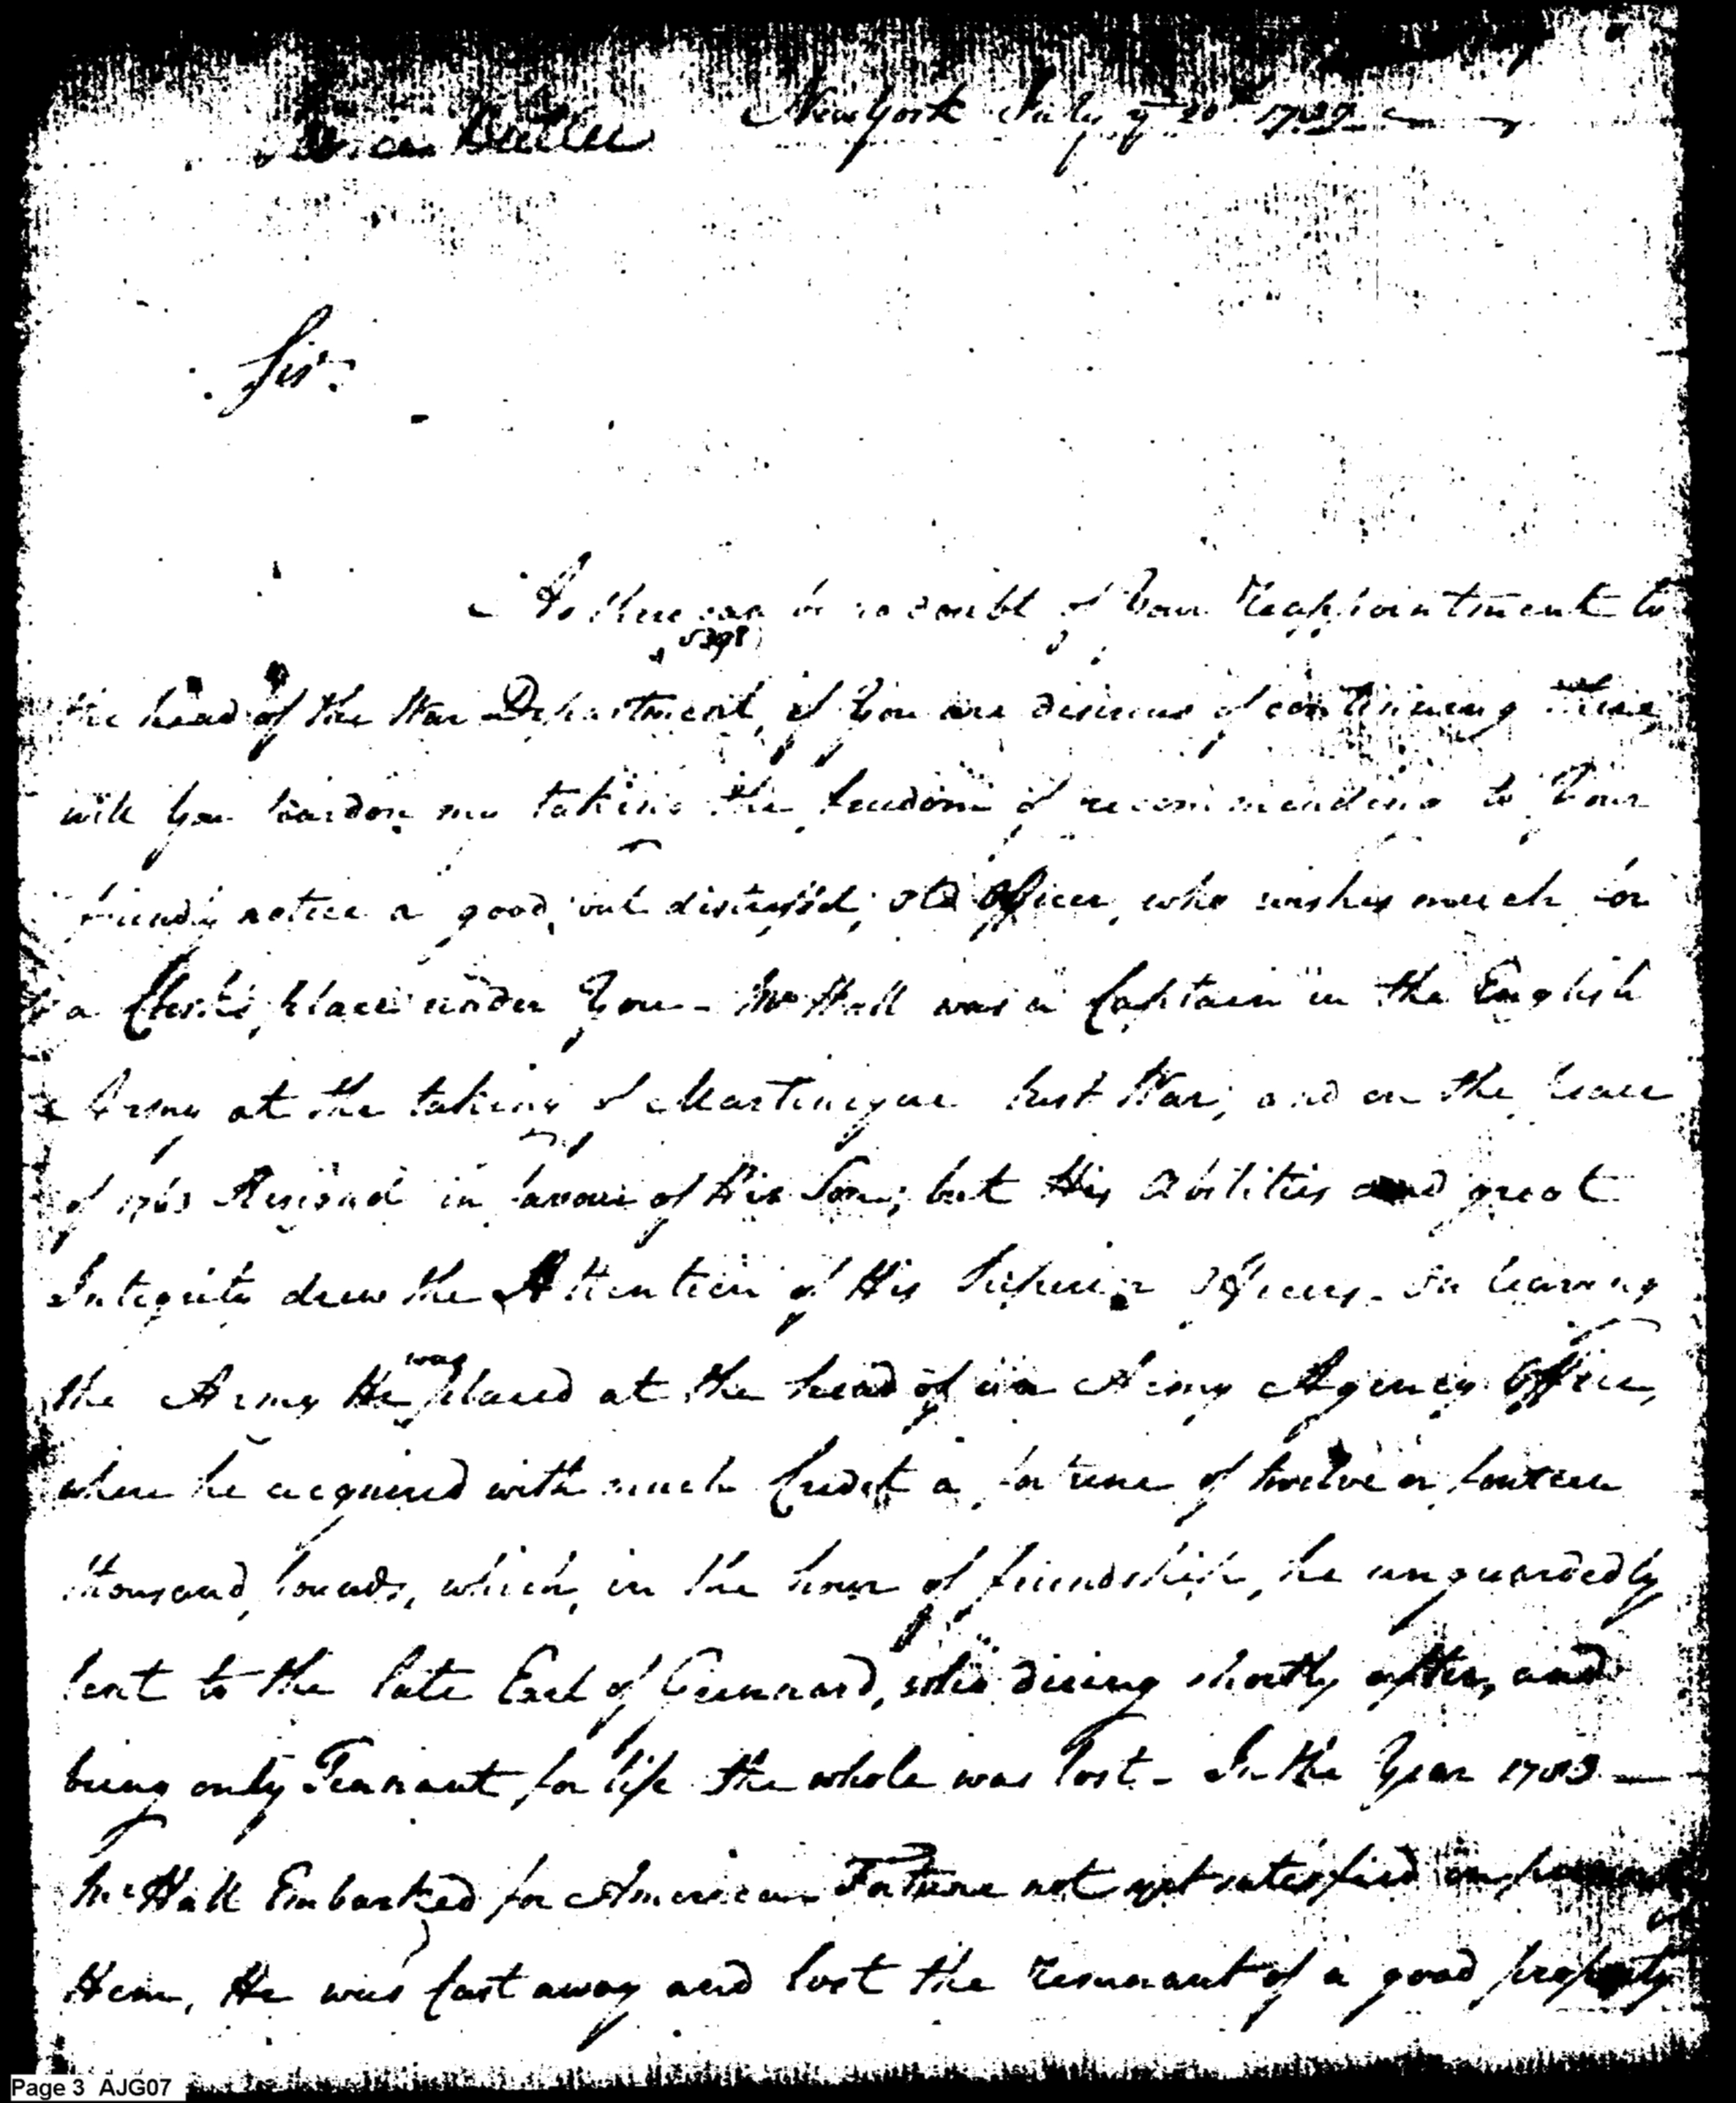 Pierce Butler
New York July ye 20th 1789
Sir.
As there can be no doubt of Your Reappointment to
5398
the head of the War Department, if You are desirous of continuing there,
will You pardon my taking the freedom of recommending to Your
friendly notice a good, but distressed, old Officer, who wishes much for
a Clerk's place under You - Mr Hall was a Captain in the English
Army at the taking of Martinique last War; and on the Peace
of 1763 Resignd in favour of His Son; but His Abilities and great
Integrity drew the Attention of His Superior Officers. On leaving
the Army He was placed at the head of an Army Agency Office,
where he acquired with much Credit a fortune of twelve or fourteen
thousand pounds, which, in the hour of friendship, he unguardedly
lent to the late Earl of who dieing shortly after, and
being only Tennant for life the whole was lost - In the Year 1783
Mr Hall Embarked for America. Fortune not yet satisfied in
Him, He was Cast away and lost the remnant of a good property
Page 3 AJG07